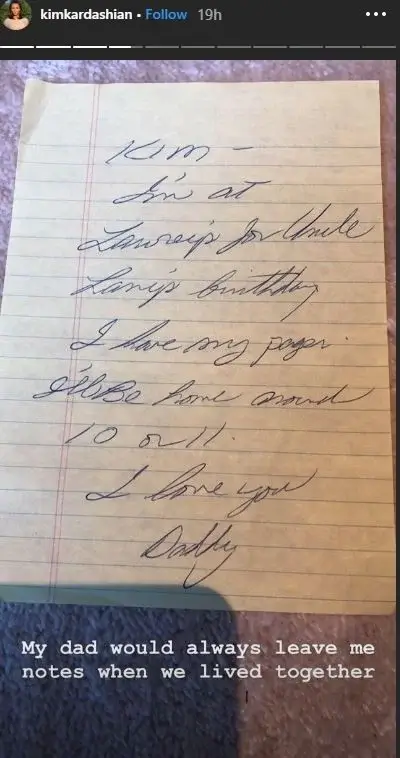 kimkardashian • Follow 19h
Kim -
I'm at
for Uncle
birthday
I have my pager.
I'll Be home around
10 or 11.
I love you
Daddy
My dad would always leave me
notes when we lived together